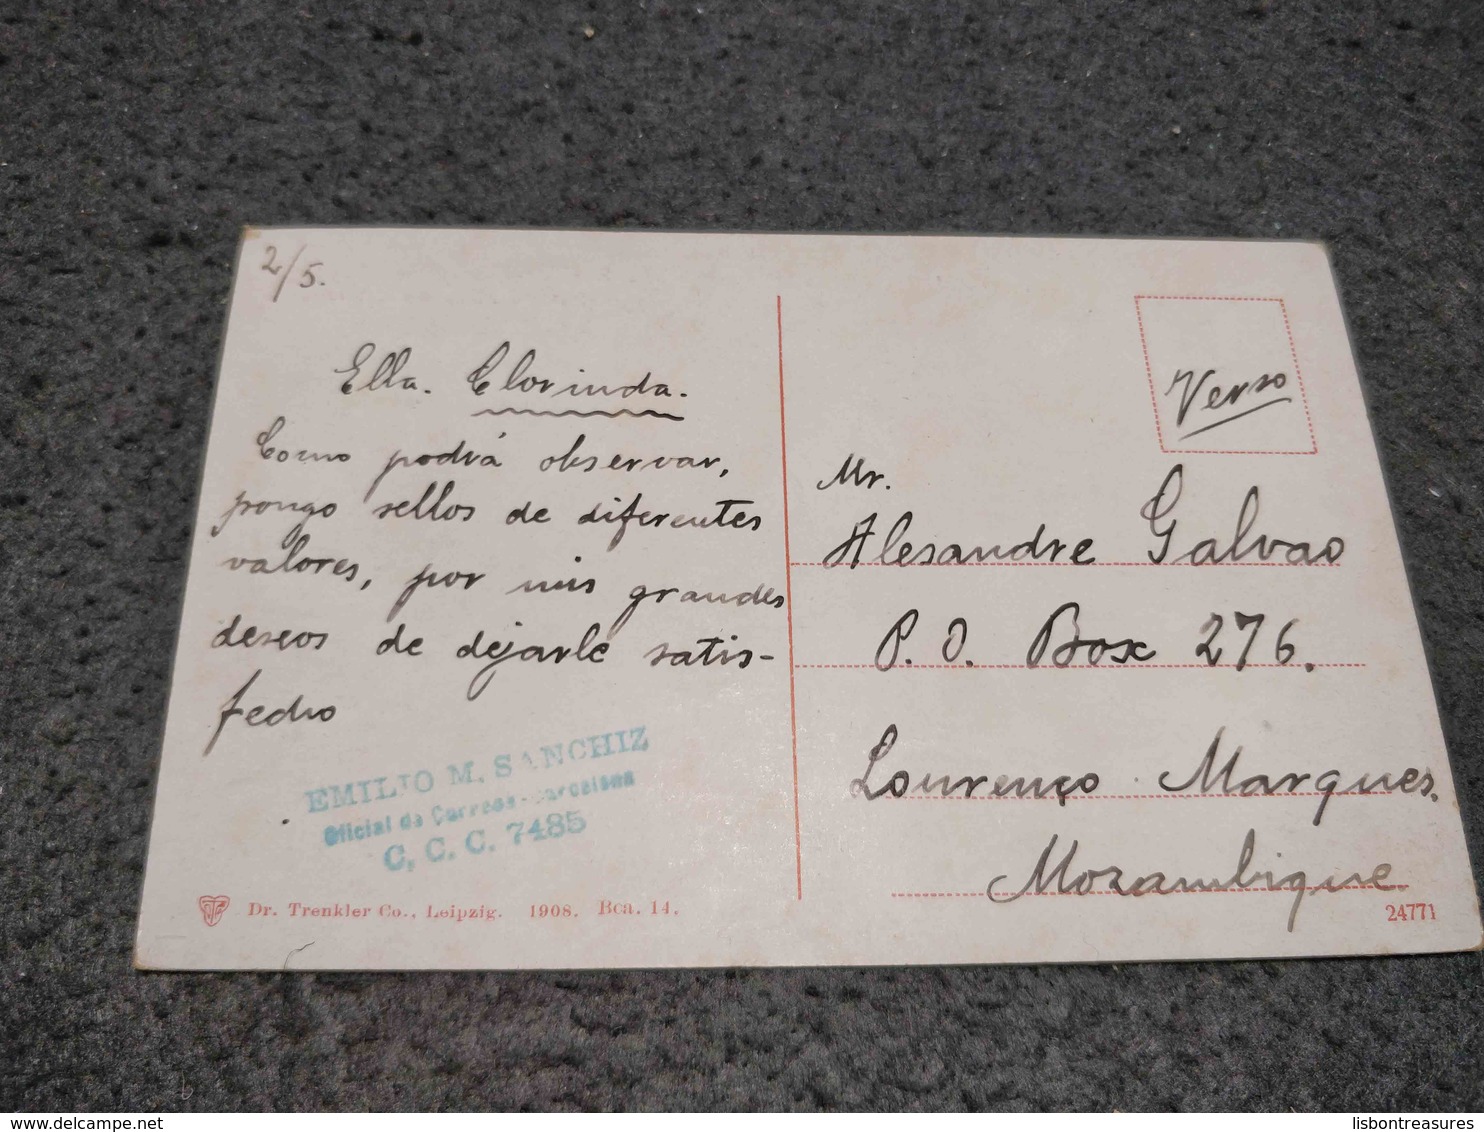 2/5.
Ella. Clorinda.
Como podrá observar,
pongo sellos de diferentes
valores, por mis grandes
deseos de dejarle satis-
fecho
EMILIO M. SANCHIZ
Oficial de Correos-Barcelona
C. C. C. 7485
Dr. Trenkler Co., Leipzig. 1908. Bca. 14.
Verso
Mr.
Alesandre Galvao
P. O. Box 276.
Lourenço Marques.
Mozambique
24771
lisbontreasures
delcampe.net